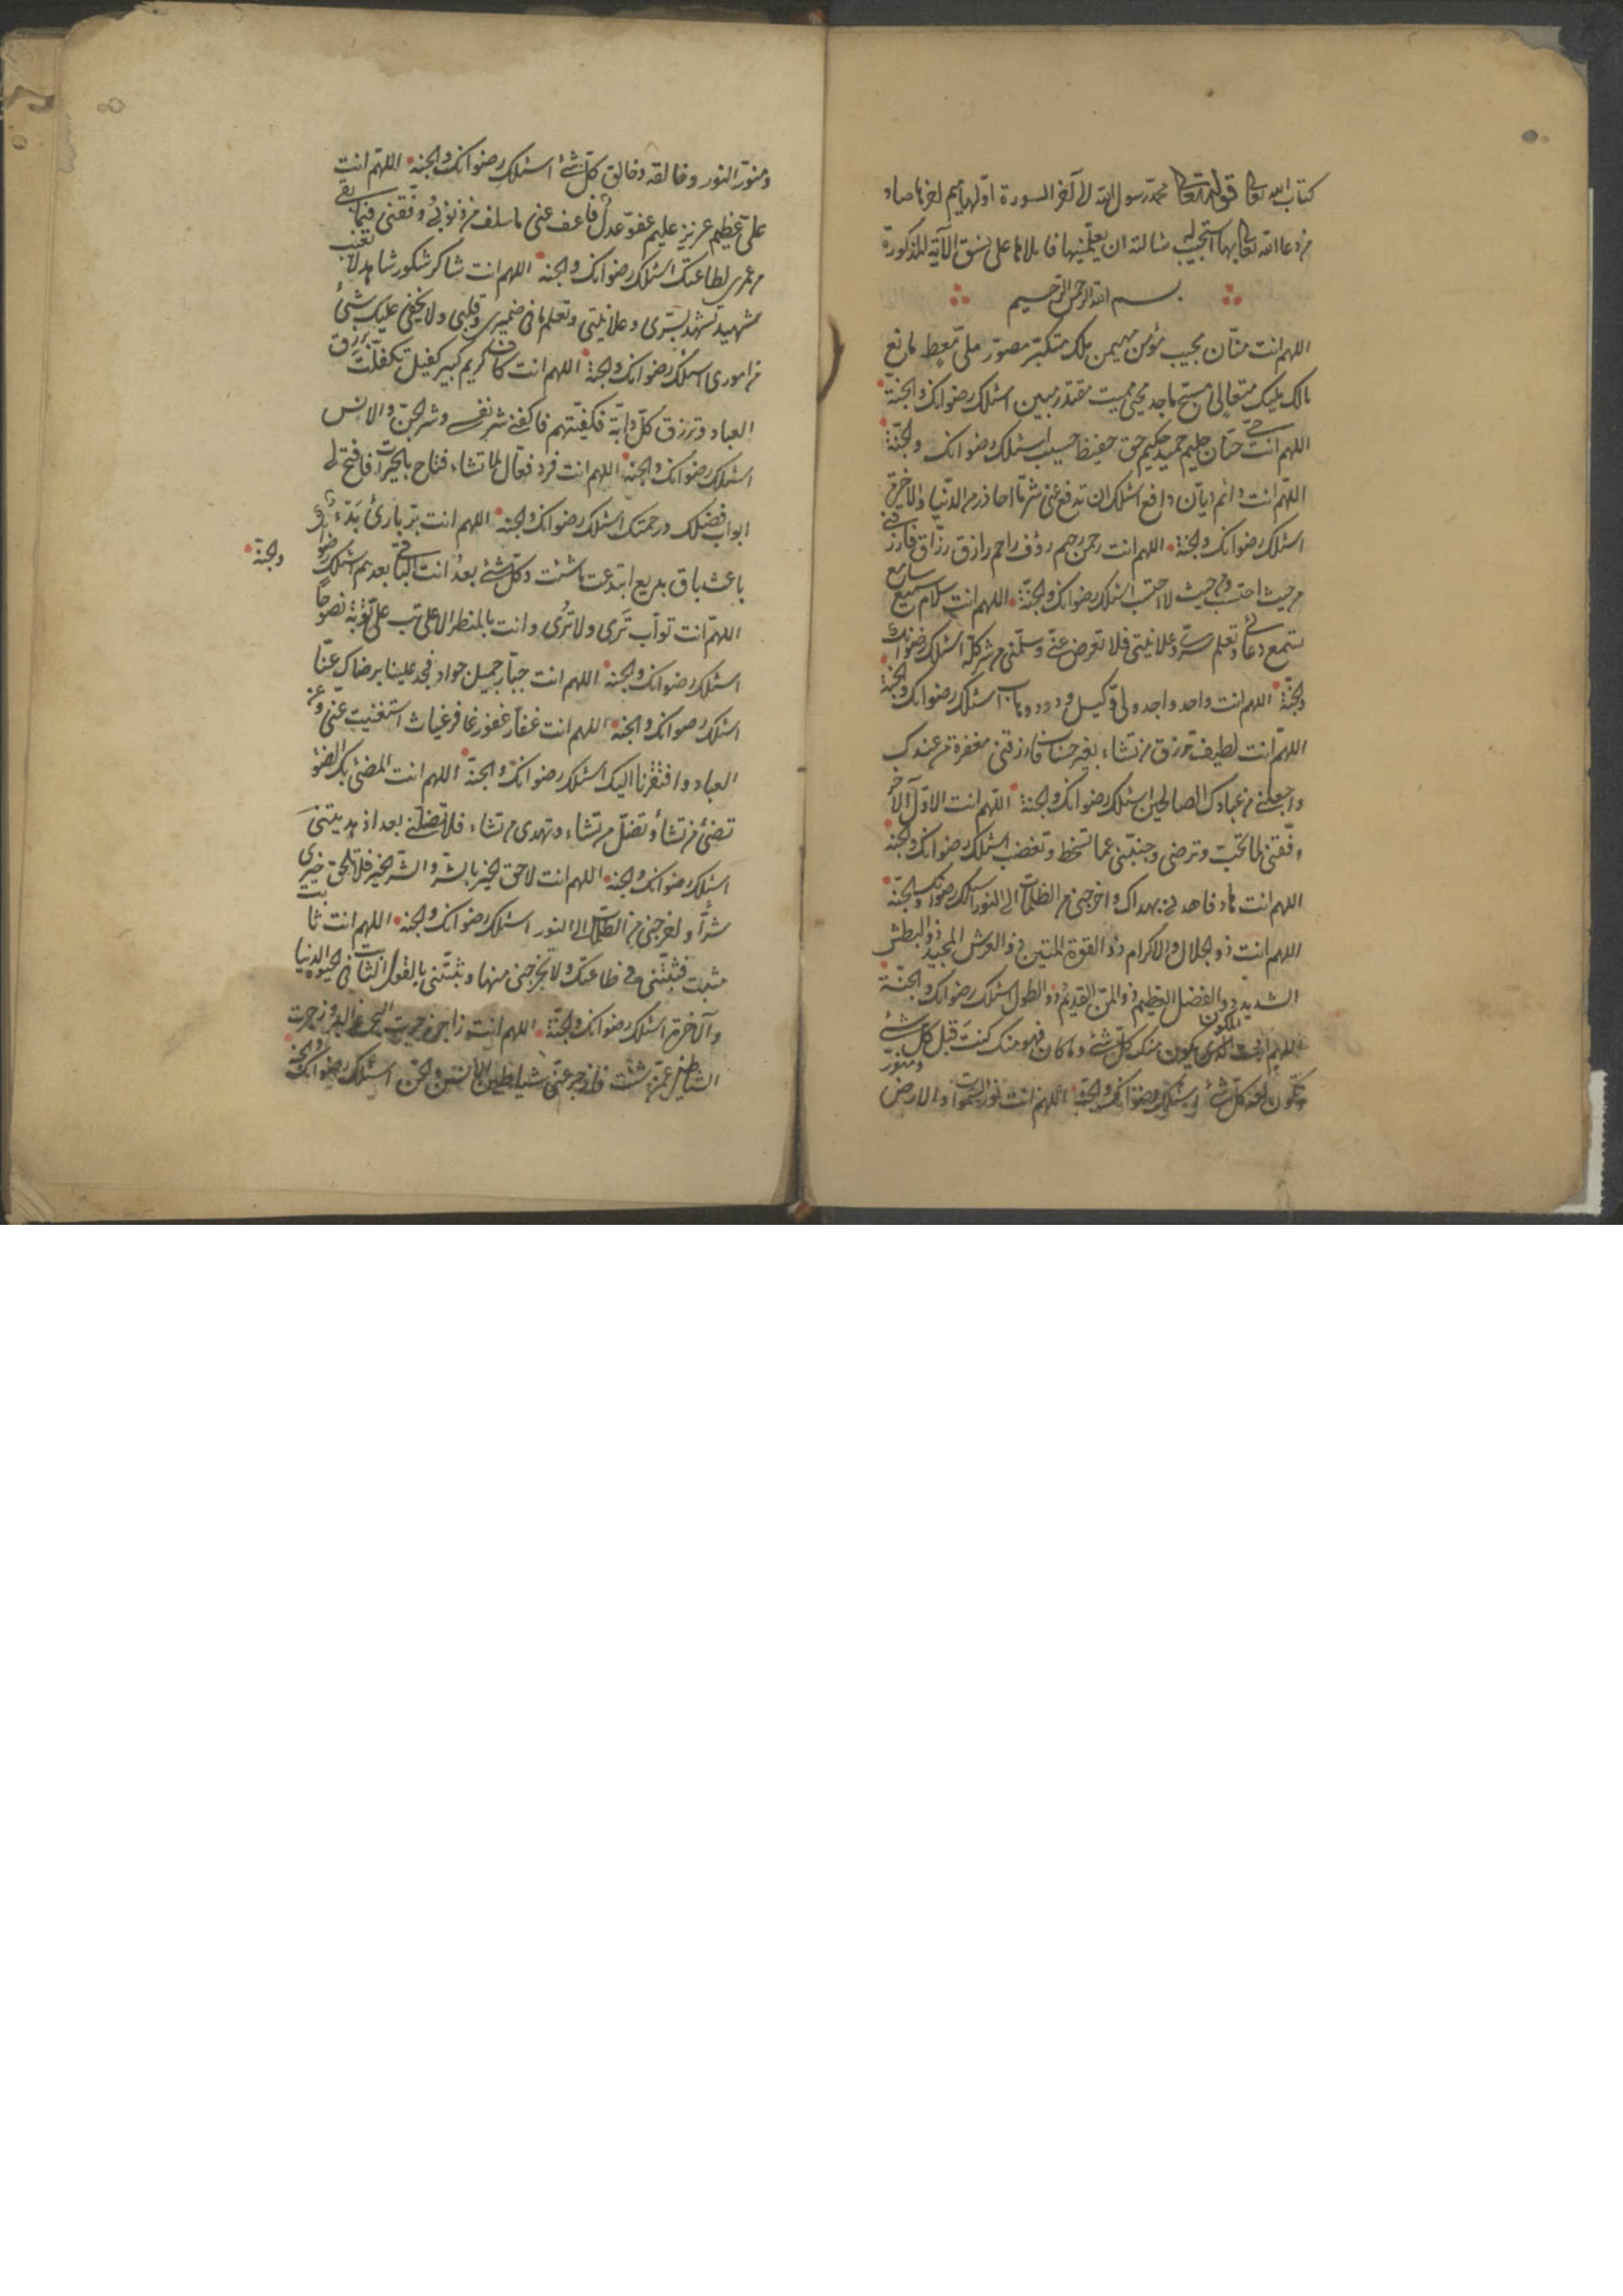 كتاب الله تعالى قوله تعالى محمد رسول الله الى آخر السورة اولها ميم اخرها صاد
من دعا الله تعالى بها استجيب له سالته ان يعلّمنيها فاملاها على نسق الآية المذكورة
بسم الله الرحمن الرحيم
اللهم انت منّان مجيب مؤمن مهيمن ملك متكبّر مصوّر ملىّ معط مانع
مالك مليك متعالى مسبّح ماجد محيى مميت مقتدر مبين اسئلك رضوانك والجنة
اللهم انت حىّ حنّان حليم حميد حكيم حق حفيظ حسيب اسئلك رضوانك والجنّة
اللهم انت دائم ديّان دافع اسئلك ان تدفع عنى شرّ ما احاذر من الدّنيا والاخرة
اسئلك رضوانك والجنة اللهم انت رحمن رحيم رؤف راحم رازق رزّاق فارزقنى
من حيث احتسب ومن حيث لا احتسب اسئلك رضوانك والجنّة اللهم انت سلام سميع سامع
تسمع دعائى وتعلم سرّى وعلانيتى فلا تعرض عنّى وسلّمنى من شر كلّه اسئلك رضوانك
والجنّة اللهم انت واحد واجد ولىّ وكيل ودود وهاب اسئلك رضوانك والجنة
اللهم انت لطيف ترزق من تشاء بغير حساب فارزقنى مغفرة من عندك
واجعلنى من عبادك الصالحين اسئلك رضوانك والجنة اللهم انت الاوّل الآخر
وفّقنى لما تحبّ وترضى وجنّبنى عما تسخط وتغضب اسئلك رضوانك والجنة
اللهم انت هاد فاهدنى بهداك واخرجنى من الظلمات الى النور اسئلك رضوانك والجنّة
اللهم انت ذو الجلال والاكرام ذو القوة المتين ذو العرش المجيد ذو البطش
الشديد ذو الفضل العظيم ذو المنّ القديم ذو الطول اسئلك رضوانك والجنّة
اللهم انت المكون الذى يكون منك كلّ شئ وما كان فهو منك كنت قبل كل شئ
وتكون بعد كلّ شئ اسئلك رضوانك والجنّة اللهم انت نور السموات والارض ومنوّر
ومنوّر النور وخالقه وخالق كلّ شئ اسئلك رضوانك والجنة اللهم انت
علىّ عظيم عزيز عليم عفوّ عدل فاعف عنى ما سلف من ذنوبى ووفّقنى فيما بقى
من عمرى لطاعتك اسئلك رضوانك والجنة اللهم انت شاكر شكور شاهد لا تغيب
شهيد تشهد بسرّى وعلانيتى وتعلم ما فى ضميرى وقلبى ولا يخفى عليك شئ
من امورى اسئلك رضوانك والجنة اللهم انت كاف كريم كبير كفيل تكفّلت برزق
العباد وترزق كلّ دابّة فكفيتهم فاكفنى شر نفسى وشر الجنّ والانس
اسئلك رضوانك والجنة اللهم انت فرد فعّال لما تشاء فتاح بالخيرات فافتح لى
ابواب فضلك ورحمتك اسئلك رضوانك والجنة اللهم انت برّ بارئ
باعث باق بديع ابتدعت ما شئت وكل شئ بعد انت الباقى بعدهم اسئلك رضوانك
والجنّة
اللهم انت توّاب ترى ولا تُرى وانت بالمنظر الاعلى تب علىّ توبة نصوحا
اسئلك رضوانك والجنة اللهم انت جبّار جميل جواد فجد علينا برضاك عنّا
اسئلك رضوانك والجنة اللهم انت غفّار غفور غافر غياث استغنيت عنّى وعن
العباد وافتقرنا اليك اسئلك رضوانك والجنّة اللهم انت المضئ بك الضوّ
تضئ من تشأ وتضلّ من تشاء وتهدى من تشاء فلا تضلّنى بعد اذ هديتنى
اسئلك رضوانك والجنة اللهم انت لاحق الخير بالشرّ والشّر بالخير فلا تلحق خيرى
شرّا واخرجنى من الظلمات الى النور اسئلك رضوانك والجنة اللهم انت ثابت
مثبت فثبّتنى فى طاعتك ولا تخرجنى منها وثبّتنى بالقول الثابت فى الحيوة الدنيا
والآخرة اسئلك رضوانك والجنّة اللهم انت زاجر زجرت زجرت
الشياطين عمّن شئت فازجر عنّى شياطين الانس والجن اسئلك رضوانك والجنة